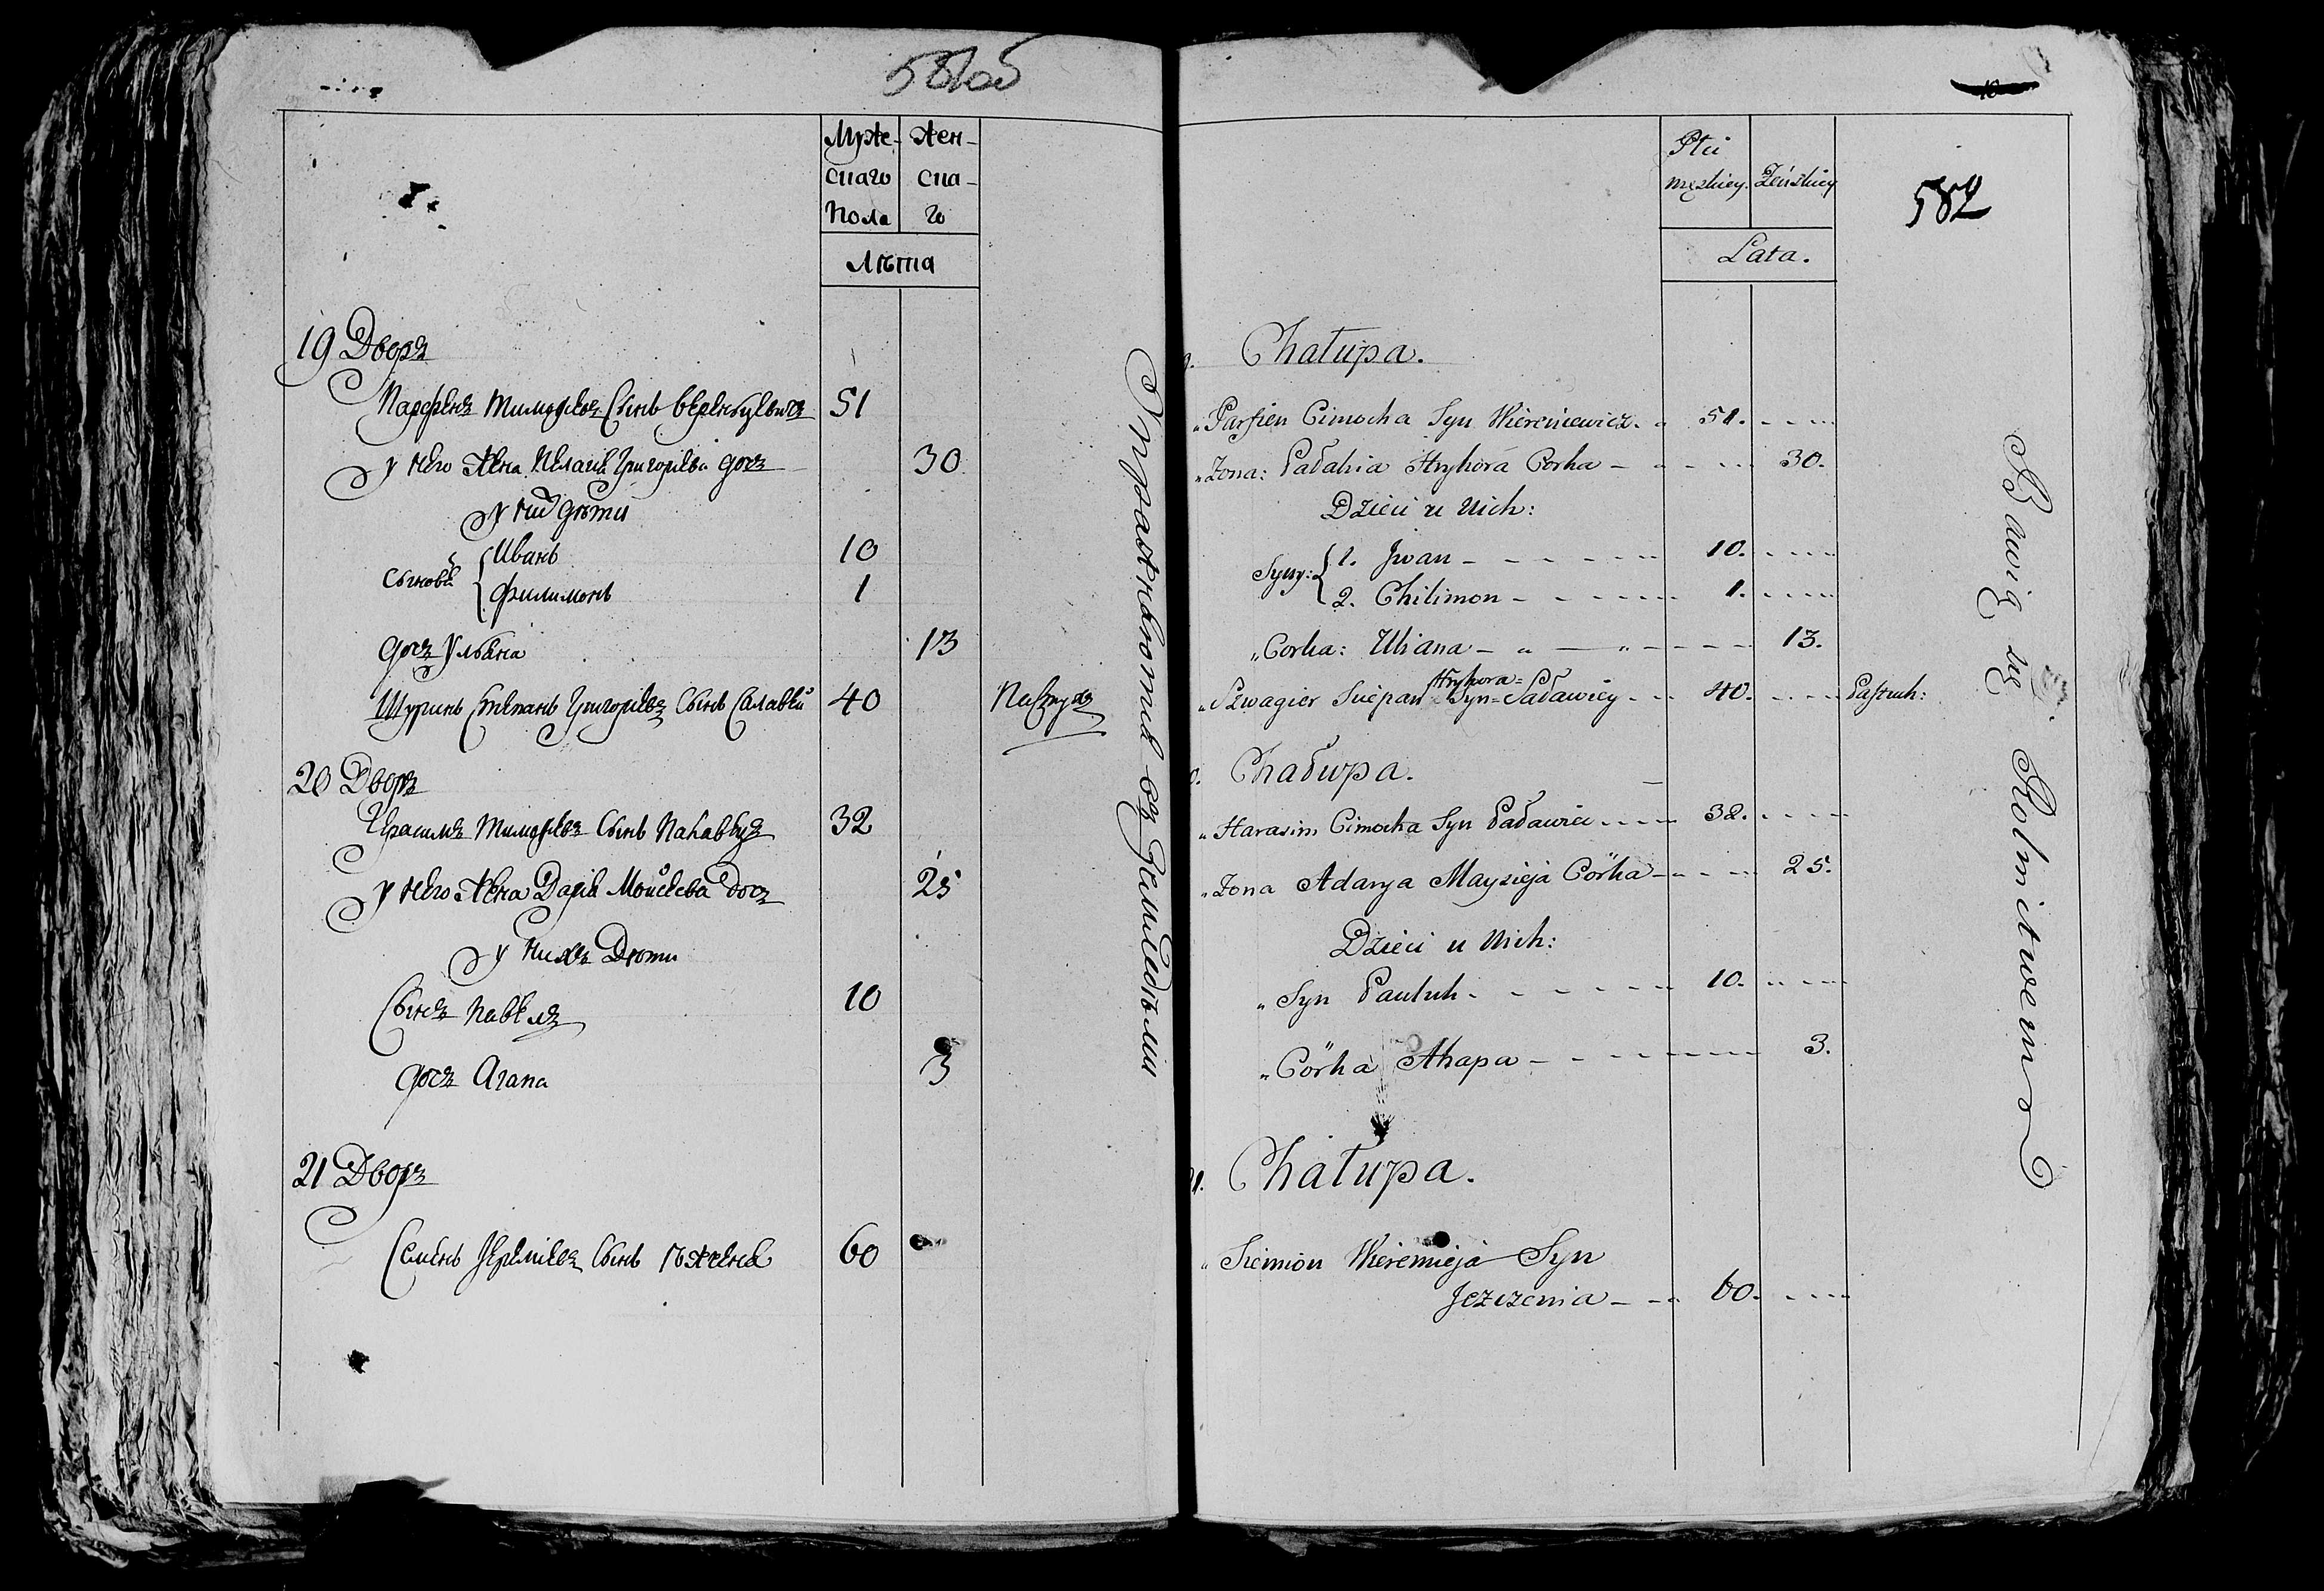 581об
Муже- Жен-
скаго ска-
Пола го
Лѣта
19 Дворъ
Парфенъ Тимофѣевъ Сынъ 51
у него Жена Пелагея Григорьева дочь 30
у них дѣти
Сыновья
Иванъ 10
Филимонъ 1
дочь Ульяна 13
Шуринъ Степанъ Григорьевъ Сынъ Салавей 40 Пастухъ
20 Дворъ
Герасимъ Тимофѣевъ Сынъ 32
у него Жена Дарья Моисеева дочь 25
у нихъ Дѣти
Сынъ Павелъ 10
дочь Агапа 3
21 Дворъ
Семенъ Іереміевъ Сынъ 60
Упражняются въ Земледѣліи
10
582
Płci
męzkiey. Żeńskiey
Lata.
Chałupa.
„ Parfien Cimocha Syn Wiereniewicz. 51.
„ Zona: Pałahia Hryhora Corka 30.
Dzieci u Nich:
Syny:
1. Jwan 10.
2. Chilimon 1.
„ Corka: Uliana 13.
Hryhora=
„ Szwagier Sciepan Syn=Saławiey 40. Pastuh:
Chałupa.
„ Harasim Cimocha Syn Paławiec 32.
„ Zona Adarya Maysieja Córka 25.
Dzieci u Nich:
„ Syn Pauluk 10.
„ Córka Ahapa 3.
21. Chałupa.
„ Siemion Wieremieja Syn
Jezczenia 60.
Bawią się Rolnictwem